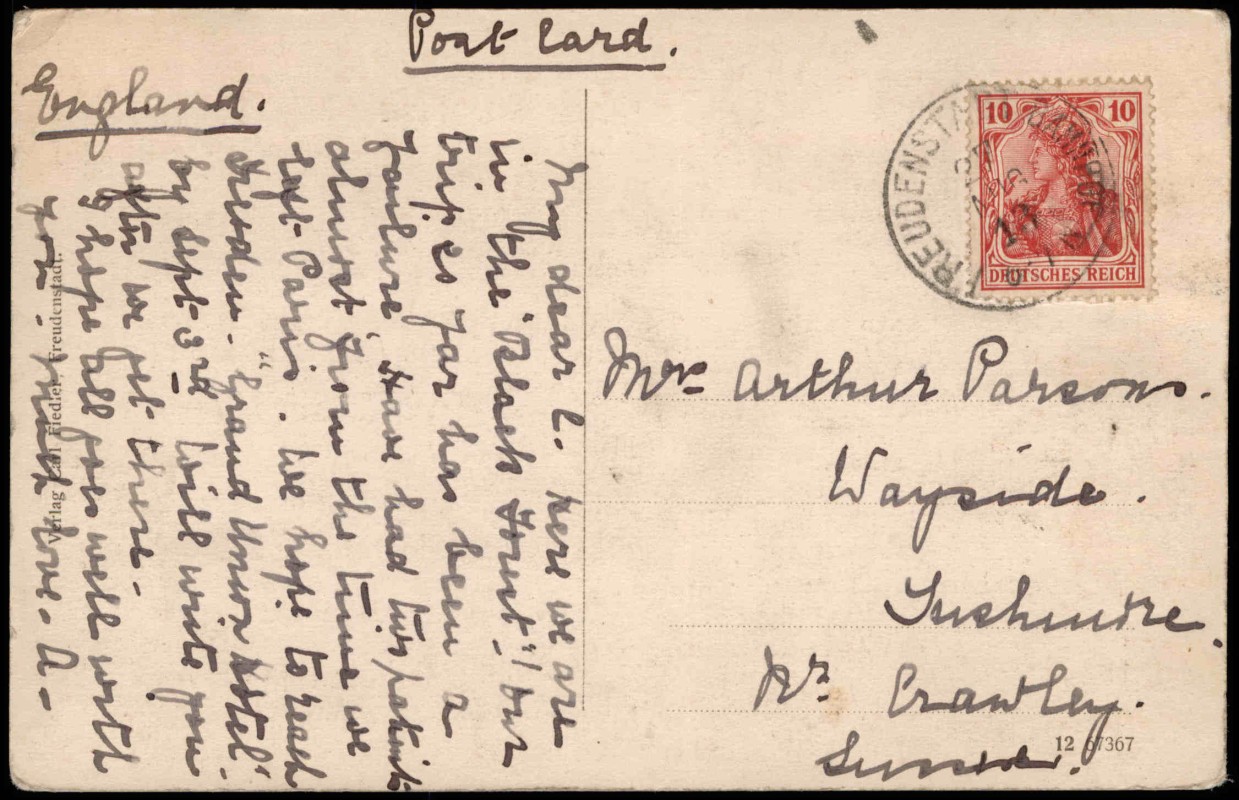 Post Card.
England.
My dear L. here we are
in the "Black Forest"! our
trip so far has been a
failure. Have had two patients
almost from the time we
left Paris. We hope to reach
Dresden - "Grand Union Hotel"
by Sept 3rd will write you
after we get there -
I hope all goes well with
you. much love - A -
10 10
DEUTSCHES REICH
FREUDENSTADT
Mrs Arthur Parsons.
Wayside.
Nr Crawley.
Sussex.
12 67367
Verlag Karl Fiedler, Freudenstadt.